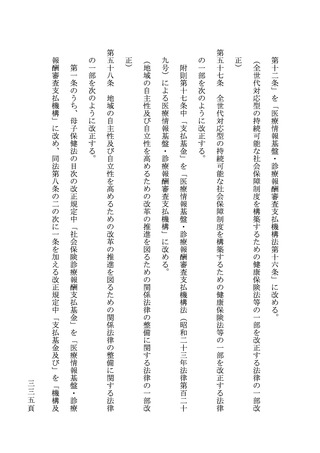 第十二条」を「医療情報基盤・診療報酬審査支払機構法第十六条」に改める。
（全世代対応型の持続可能な社会保障制度を構築するための健康保険法等の一部を改正する法律の一部改
正）
第五十七条　全世代対応型の持続可能な社会保障制度を構築するための健康保険法等の一部を改正する法律
の一部を次のように改正する。
附則第十七条中「支払基金」を「医療情報基盤・診療報酬審査支払機構法（昭和二十三年法律第百二十
九号）による医療情報基盤・診療報酬審査支払機構」に改める。
（地域の自主性及び自立性を高めるための改革の推進を図るための関係法律の整備に関する法律の一部改
正）
第五十八条　地域の自主性及び自立性を高めるための改革の推進を図るための関係法律の整備に関する法律
の一部を次のように改正する。
第一条のうち、母子保健法の目次の改正規定中「社会保険診療報酬支払基金」を「医療情報基盤・診療
報酬審査支払機構」に改め、同法第八条の二の次に一条を加える改正規定中「支払基金及び」を「機構及
三三五頁